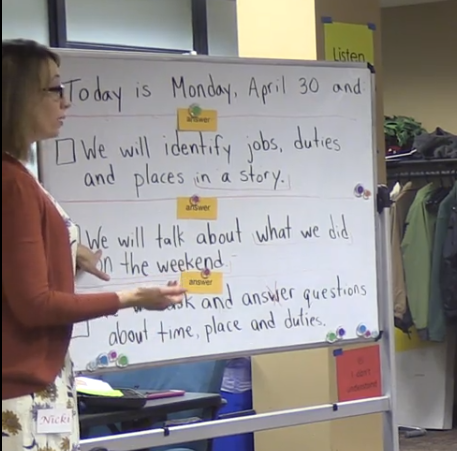 Listen
Today is Monday, April 30 and
answer
We will identify jobs, duties
and places in a story.
answer
We will talk about what we did
on the weekend.
answer
ask and answer questions
about time, place and duties.
I don't
understand
Nicki